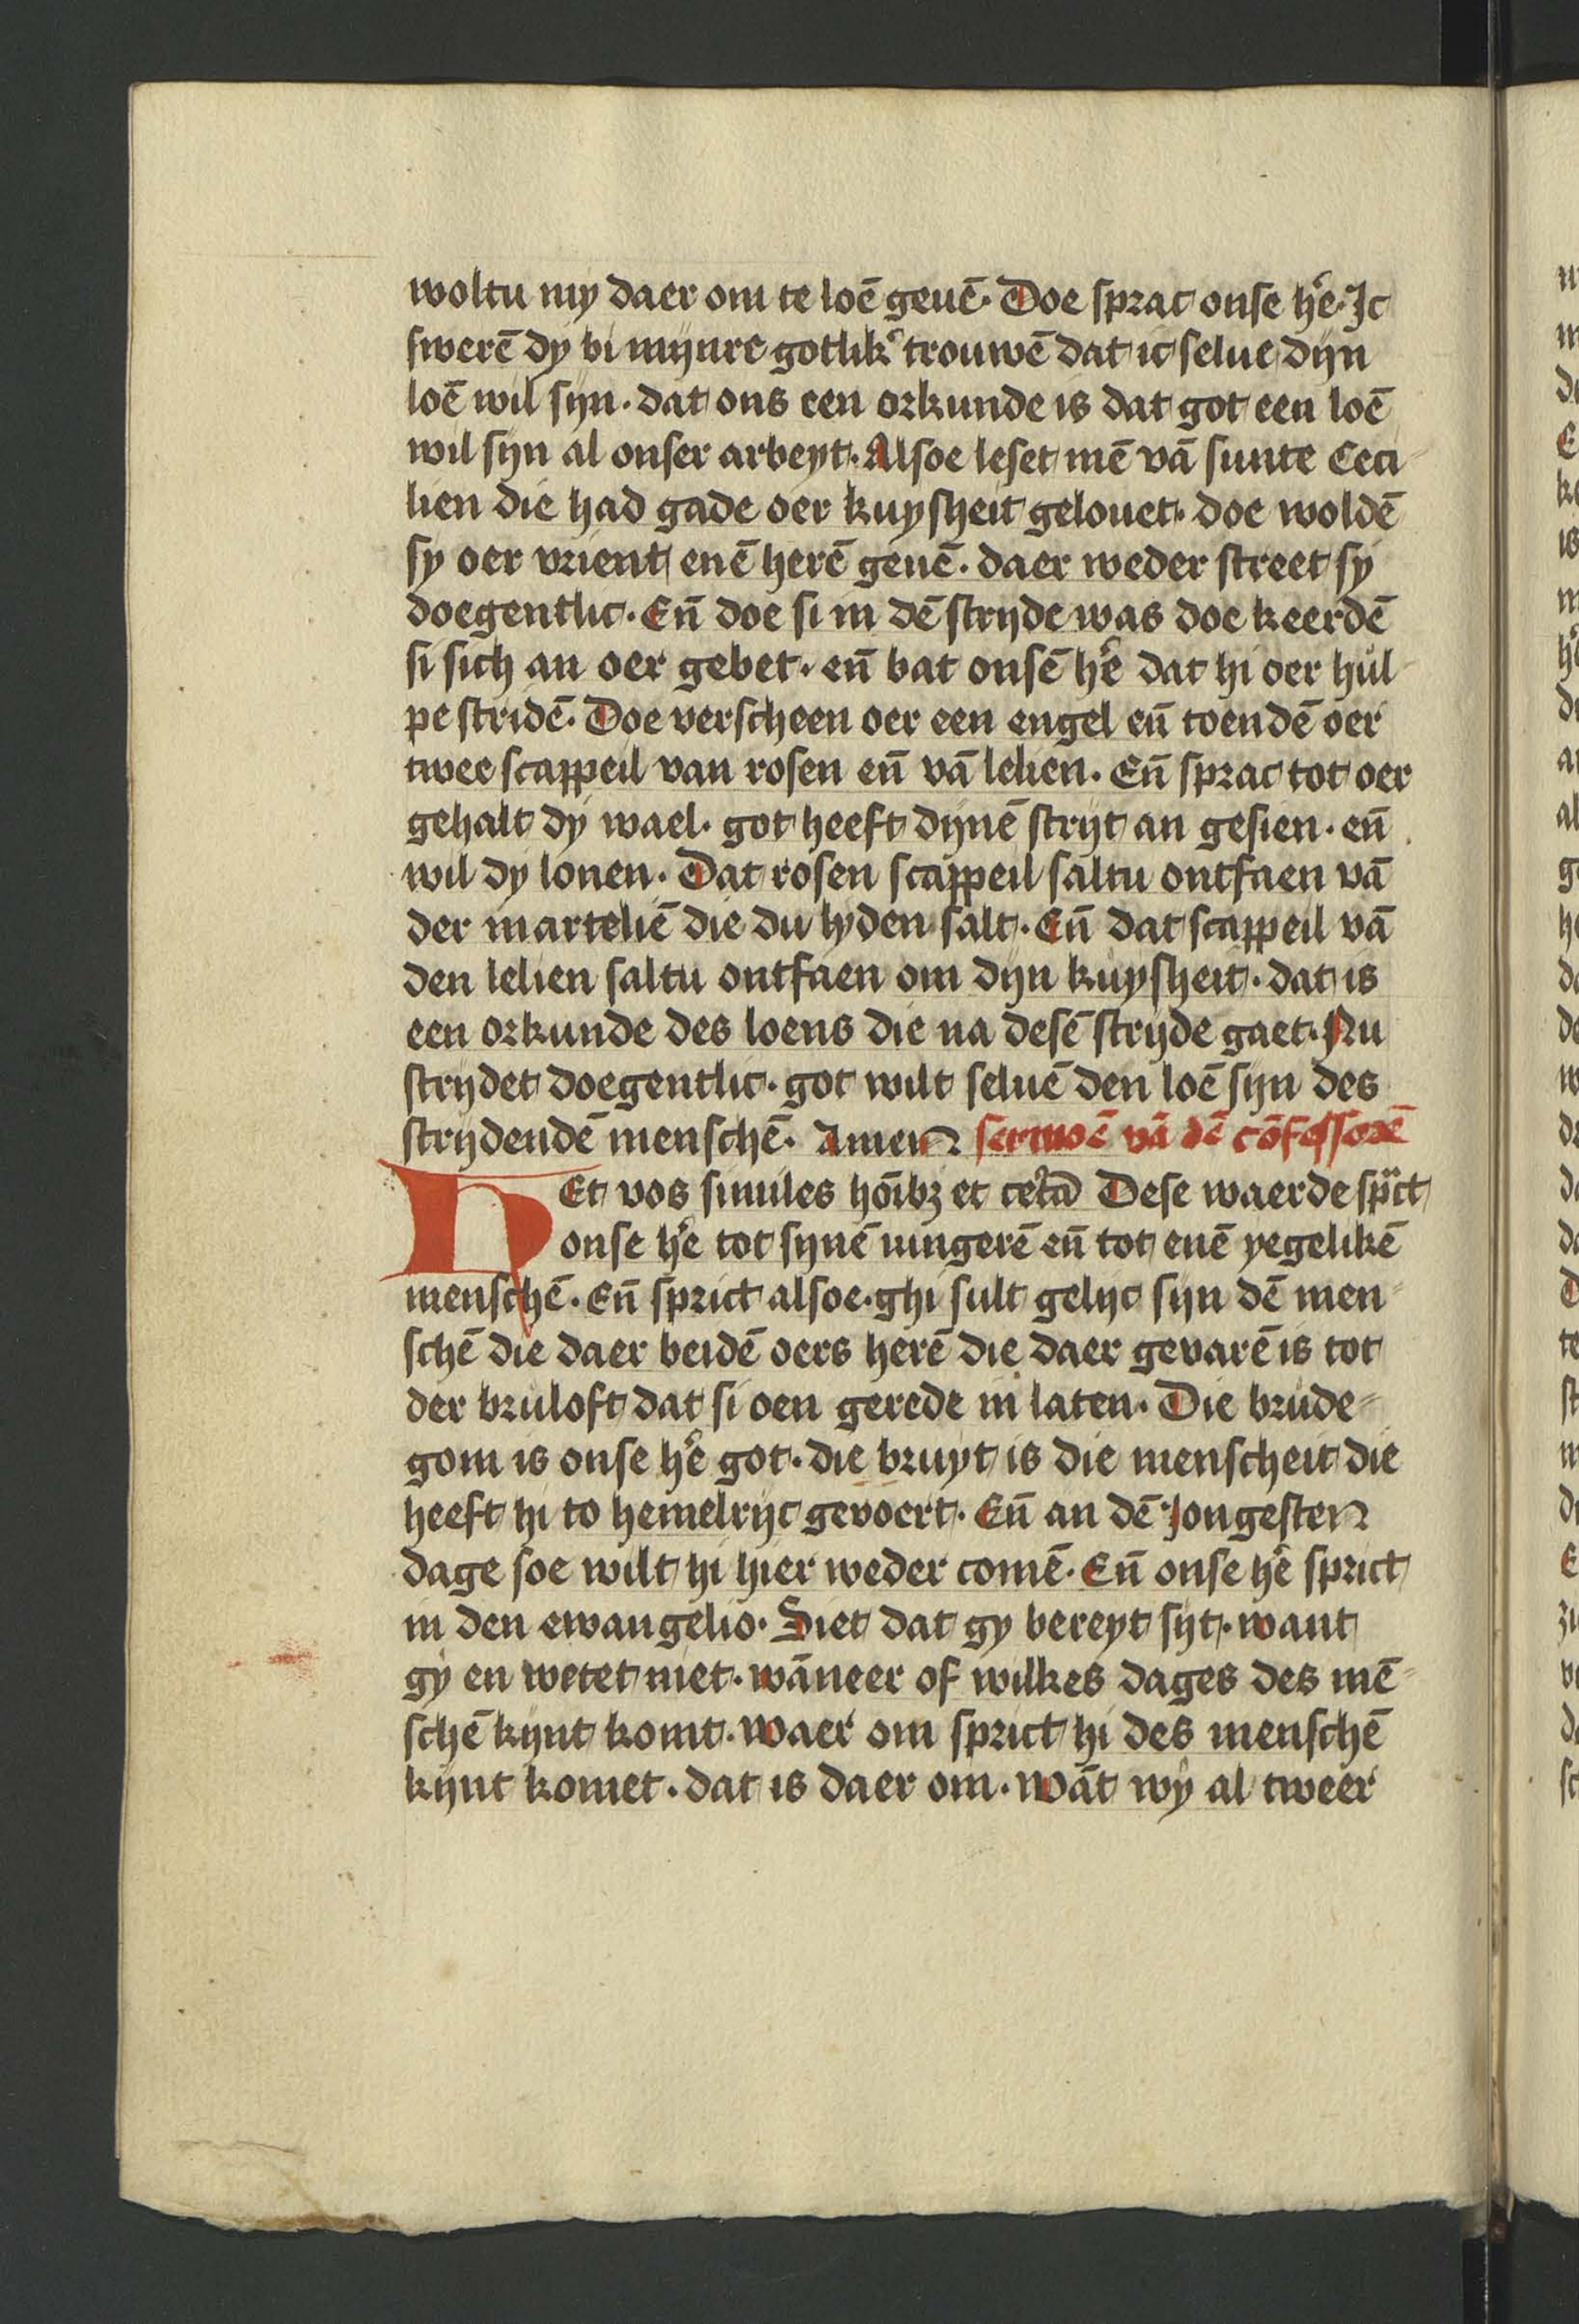 woltu my daer om te loē geuē. Doe sprac onse hē. Jc
swerē dy bi mijnre gotlik̄ trouwē dat ic selue dijn
loē wil sijn. dat ons een orkunde is dat got een loē
wil sijn al onser arbeyt. Alsoe leset mē vā sunte Ceci
lien die had gade oer kuysheit gelouet. doe woldē
sy oer vrient enē herē geuē. daer weder street sy
doegentlic. Eñ doe si in dē strijde was doe keerdē
si sich an oer gebet. eñ bat onsē hē dat hi oer hul
pe stridē. Doe verscheen oer een engel eñ toendē oer
twee scappeil van rosen eñ vā lelien. Eñ sprac tot oer
gehalt dy wael. got heeft dijnē strijt an gesien. eñ
wil dy lonen. Dat rosen scappeil saltu ontfaen vā
der marteliē die du lyden salt. Eñ dat scappeil vā
den lelien saltu ontfaen om dijn kuysheit. dat is
een orkunde des loens die na desē strijde gaet. Nu
strijdet doegentlic. got wilt seluē den loē sijn des
strijdendē menschē. Amen sermoē vā dē cōfessorē
Et vos similes hoībꝫ et cetā Dese waerde sprict
onse hē tot sijnē iungerē eñ tot enē yegelikē
menschē. Eñ sprict alsoe. ghi sult gelijc sijn dē men
schē die daer beidē oers herē die daer geuarē is tot
der bruloft dat si oen gerede in laten. Die brude
gom is onse hē got. die bruyt is die menscheit die
heeft hi to hemelrijc gevoert. Eñ an dē Jongesten
dage soe wilt hi hier weder comē. Eñ onse hē sprict
in den ewangelio. Siet dat gy bereyt sijt. want
gy en wetet niet. wāneer of wilkes dages des mē
schē kijnt komt. waer om sprict hi des menschē
kijnt komet. dat is daer om. wāt wy al tweer